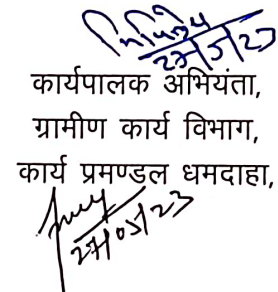 27/5/23
कार्यपालक अभियंता,
ग्रामीण कार्य विभाग,
कार्य प्रमण्डल धमदाहा,
27/05/23